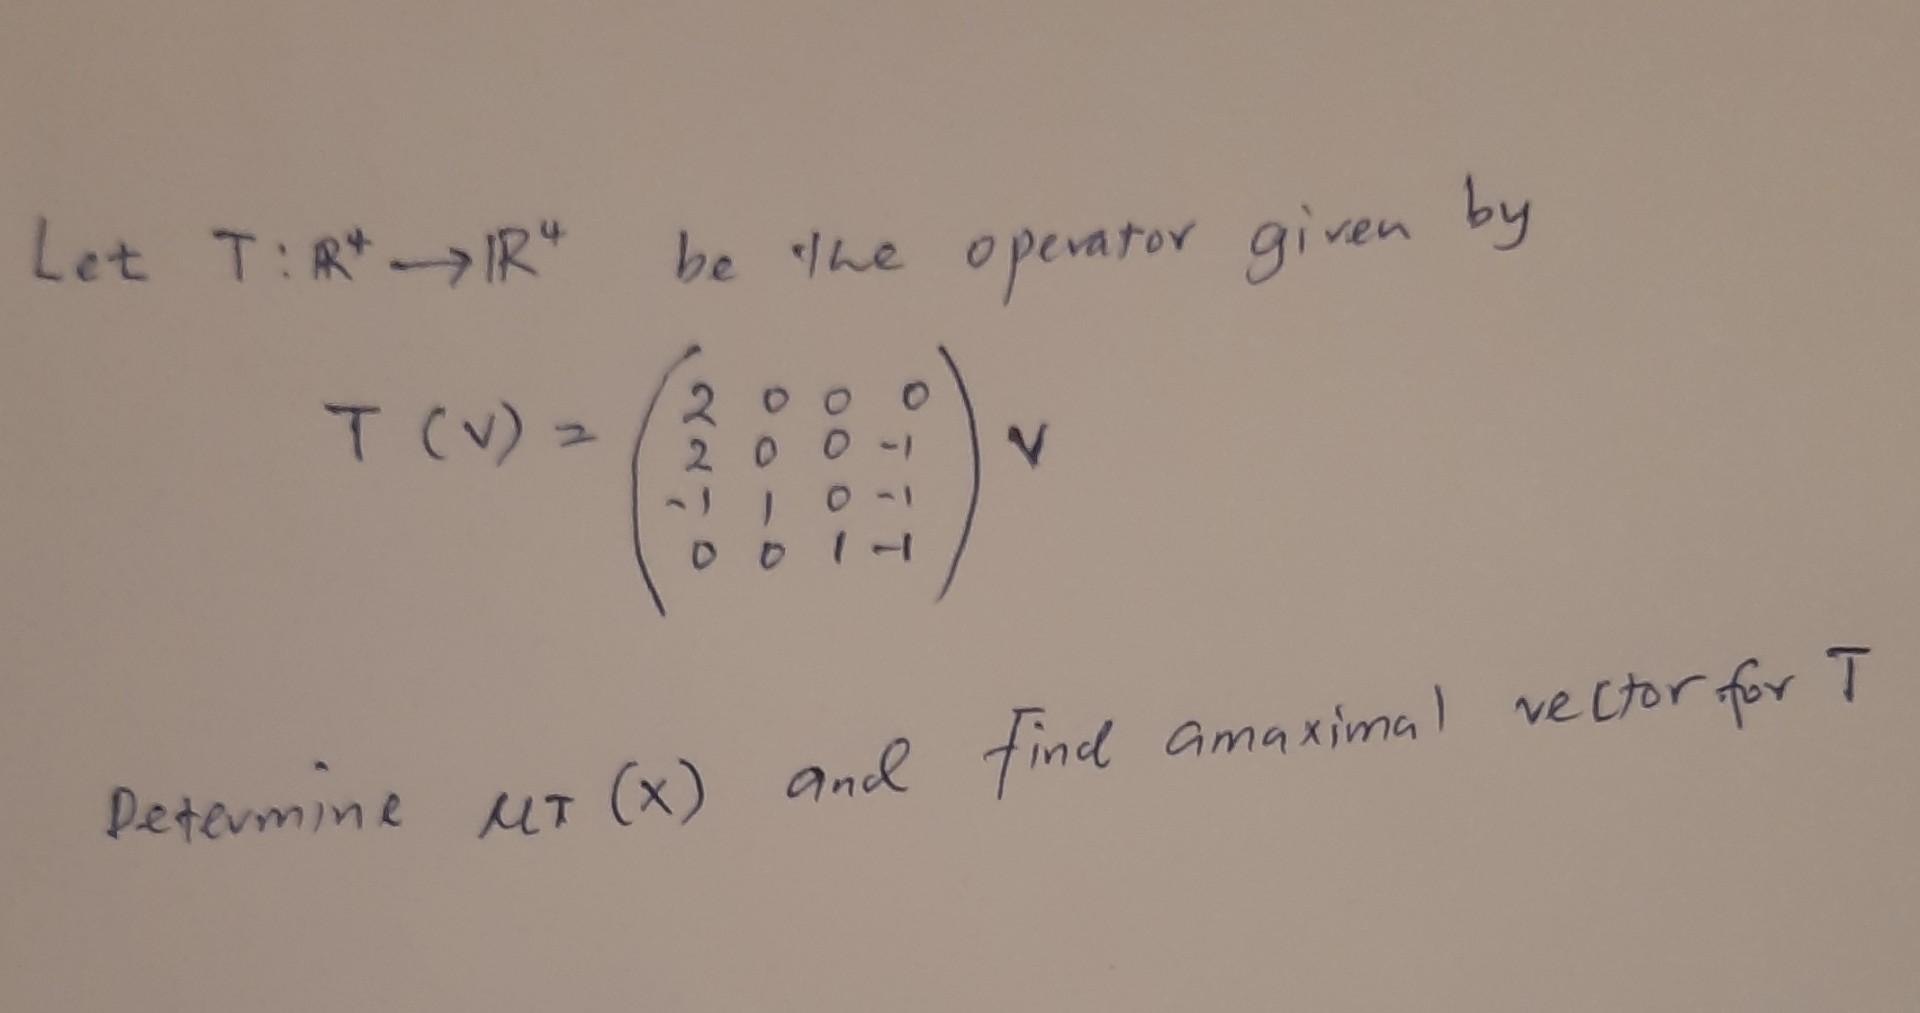 Let T: ℝ⁴ → ℝ⁴ be the operator given by
T (v) = ( 2 0 0 0
2 0 0 -1
-1 1 0 -1
0 0 1 -1 ) v
Determine μT (x) and find a maximal vector for T